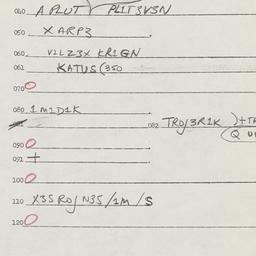 040 A PLUT PLIT3VSN
050 X ARP3
060 VLLZ3X KRIGN
061 KATUS (350
070 O
080 1 M1D1K
082 TROJ3R1K )+TA
Q U
090 O
091 +
100 O
110 X35 ROJ N35/1M/S
120 O